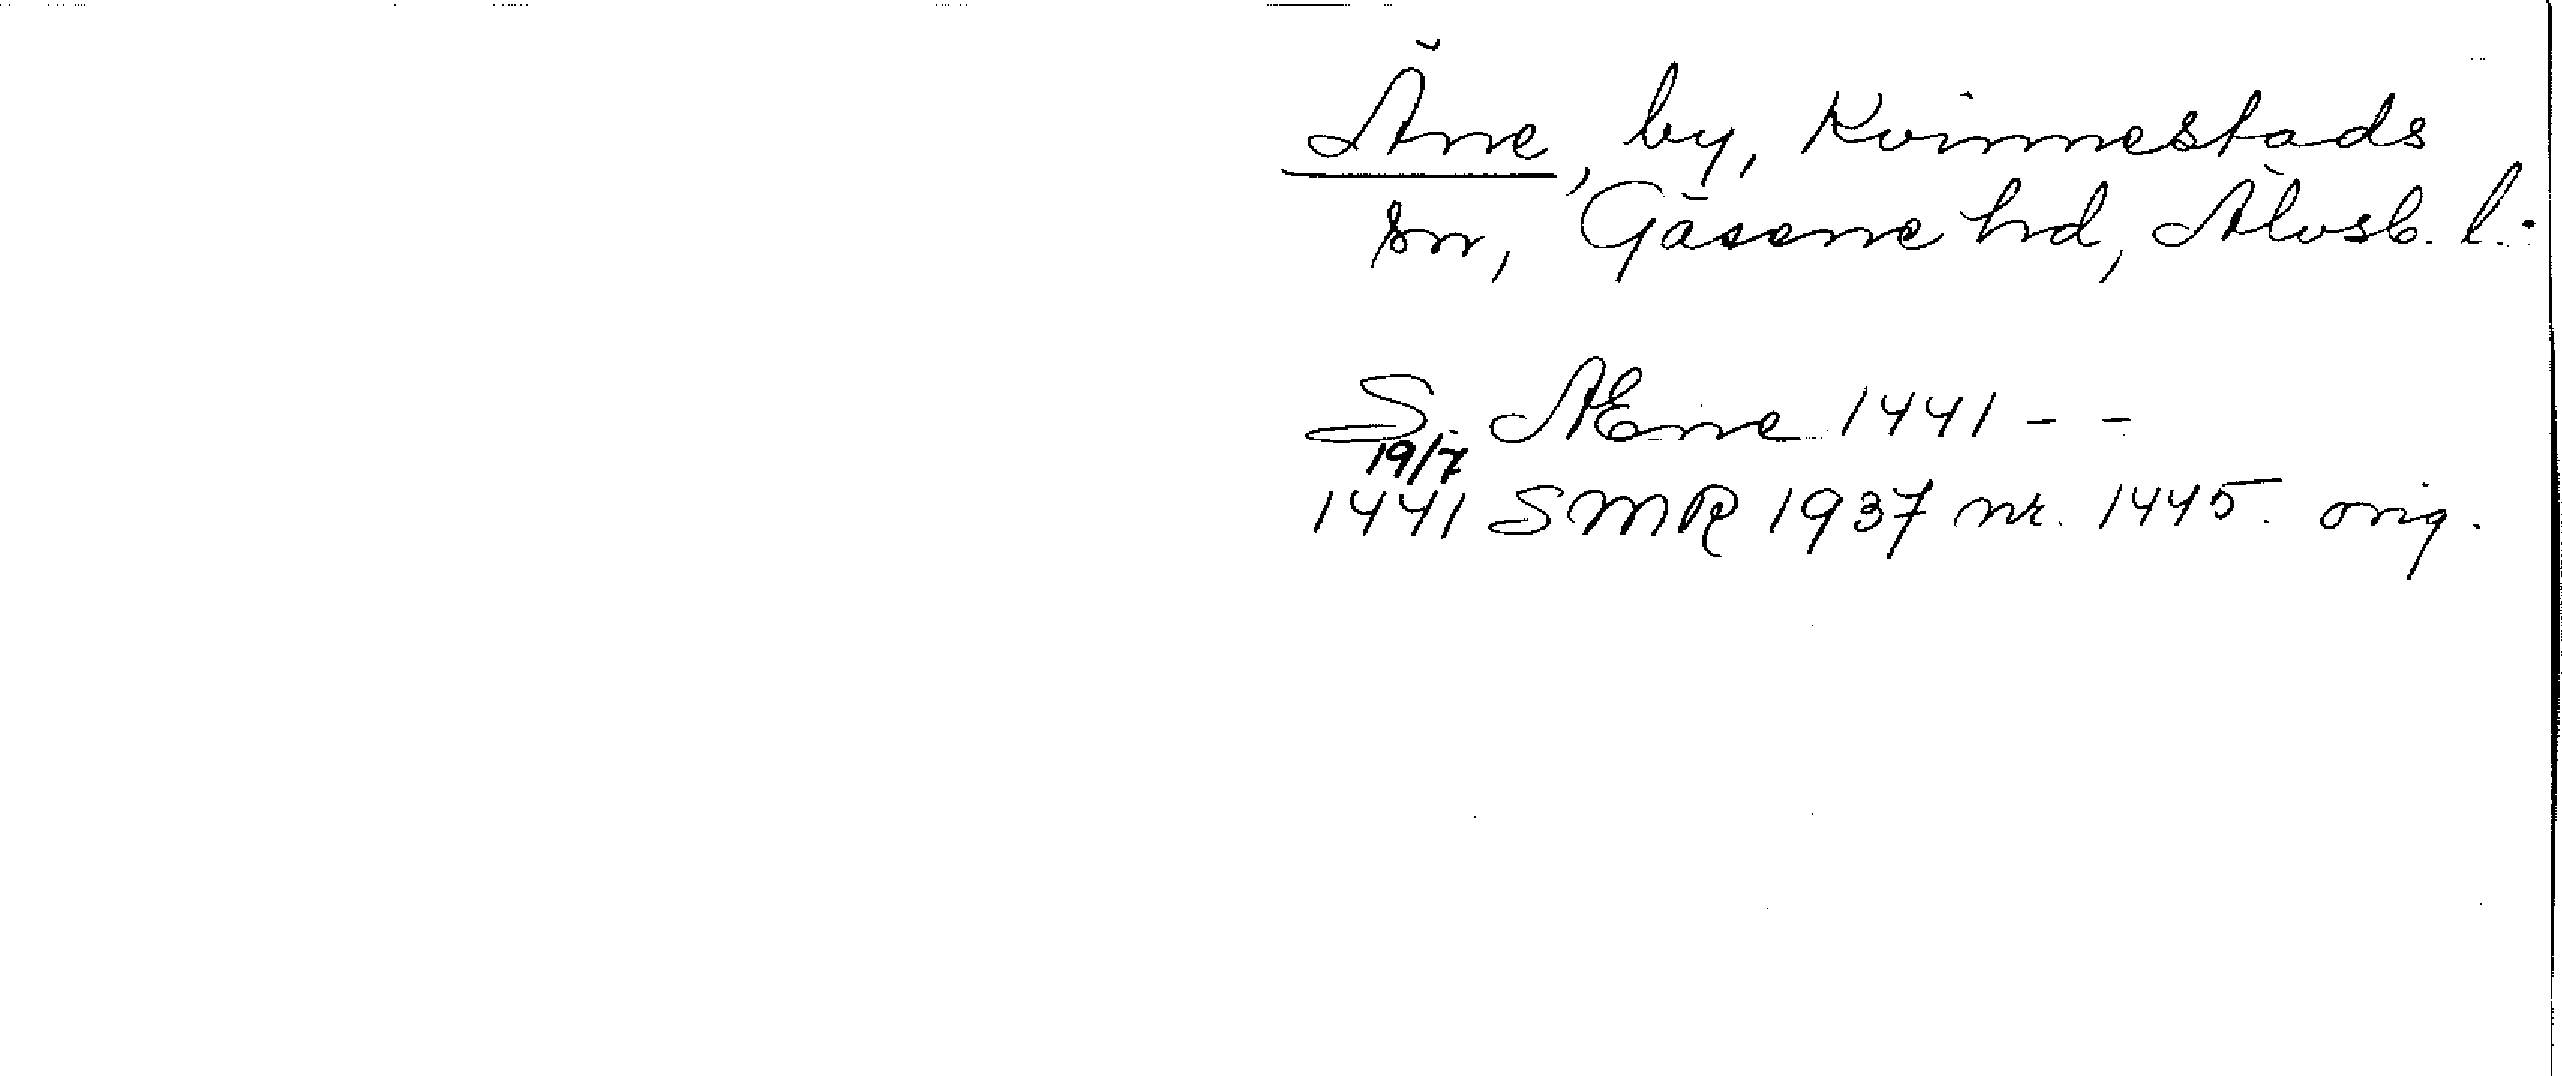 Äne, by, Kvinnestads
sn, Gäsene hd, Älvsb. l.
S. Æne 1441 - -
19/7
1441 SMR 1937 nr. 1445. orig.